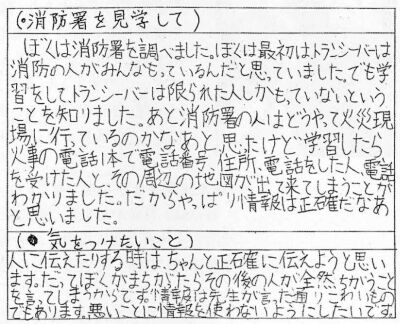 (・消防署を見学して)
ぼくは消防署を調べました。ぼくは最初はトランシーバーは
消防の人がみんなもっているんだと思っていました。でも学
習をして、トランシーバーは限られた人しかもっていないという
ことを知りました。あと消防署の人はどうやって火災現
場に行っているのかなあと思ったけど学習したら
火事の電話1本で電話番号、住所、電話をした人、電話
を受けた人と、その周辺の地図が出て来てしまうことが
わかりました。だからやっぱり情報は正確だなあ
と思いました。
(・気をつけたいこと)
人に伝えたりする時は、ちゃんと正確に伝えようと思い
ます。だってぼくがまちがったらその後の人が全然、ちがうこと
を言ってしまうからです。情報は先生が言った通りこわいもの
でもあります。悪いことに情報を使わないようにしたいです。